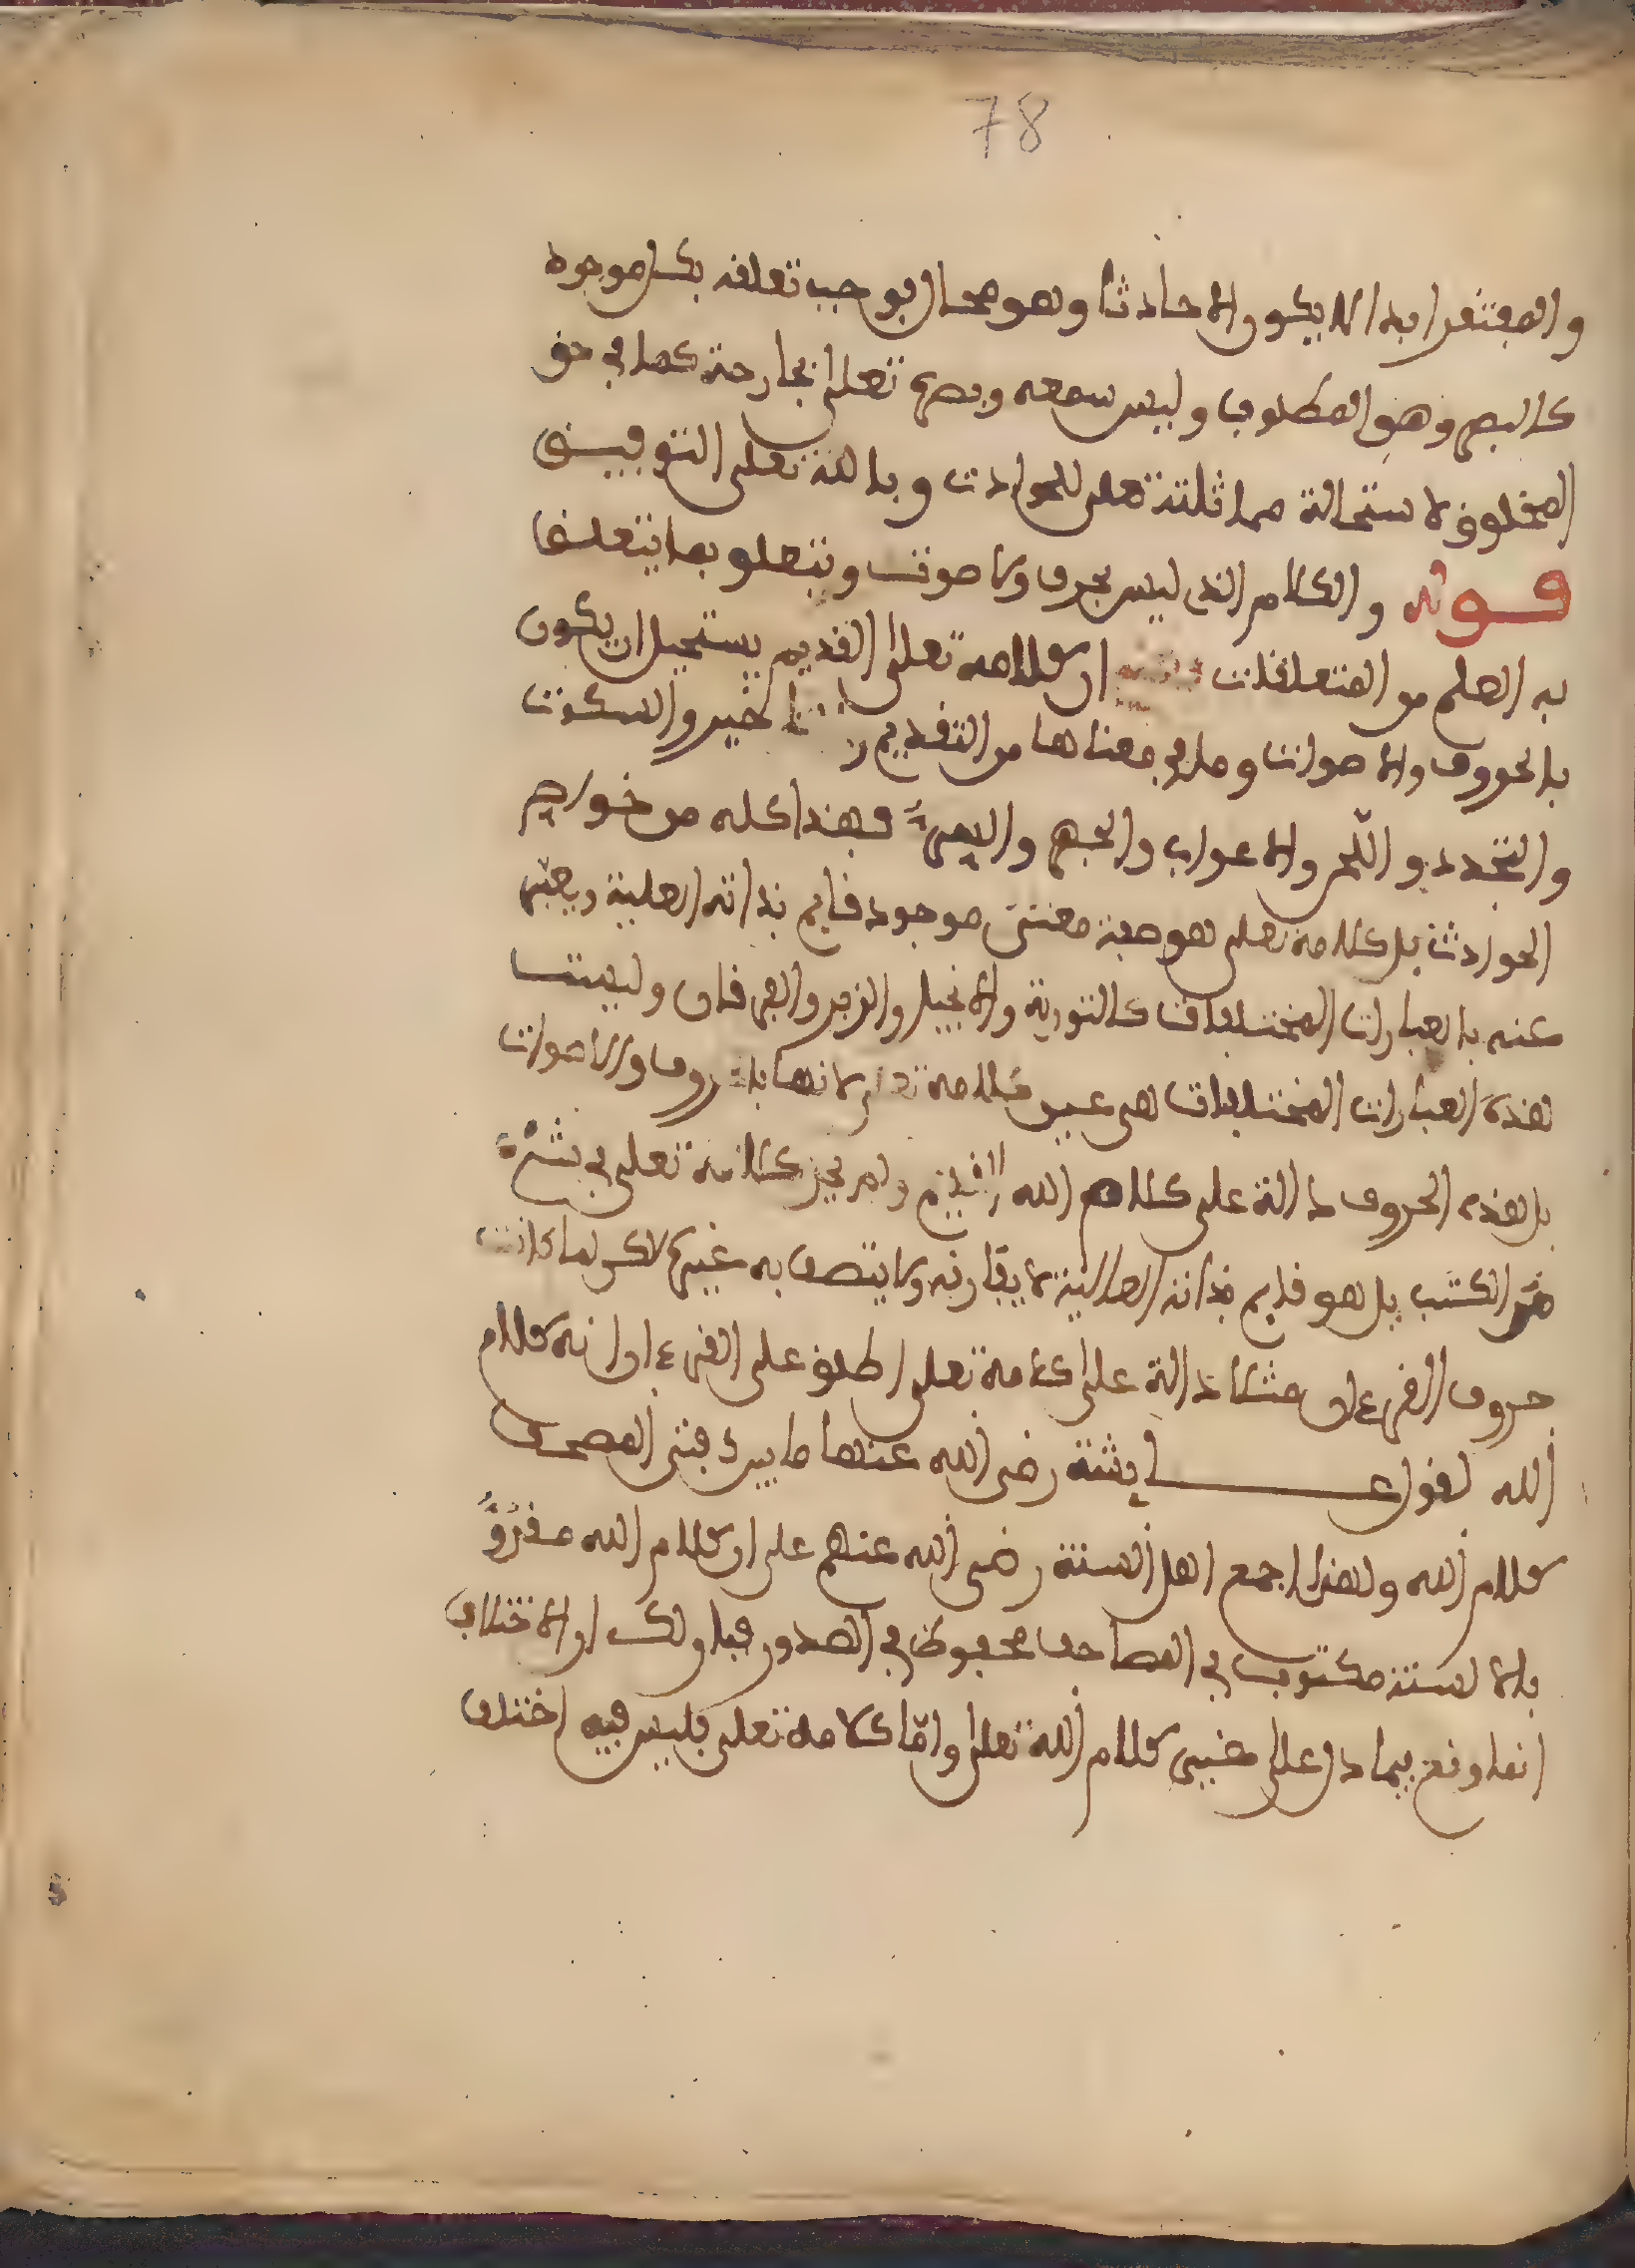 78
والمفتقر ابدا لا يكون الا حادثا وهو محال فوجب تعلقه بكل موجود
كالبصر وهو المطلوب وليس سمعه وبصره تعلى بجارحة كما في حق
المخلوق لاستحالة مماثلته تعلى للحوادث وبالله تعلى التوفيـق
قوله والكلام الذي ليس بحرف ولا صوت ويتعلق بما يتعلق
به العلم من المتعلقات ان كلامه تعلى القديم يستحيل ان يكون
بالحروف والاصوات وما في معناها من التقديم والتاخير والسكوت
والتجدد واللحن والاعراب والجهر والسر فهذا كله من خواص
الحوادث بل كلامه تعلى هو صفة معنى موجود قايم بذاته العلية ويعبر
عنه بالعبارات المختلفات كالتورية والانجيل والزبر والفرقان وليست
هذه العبارات المختلفات هي عين كلامه تعلى لانها بالحروف والاصوات
بل هذه الحروف دالة على كلام الله القديم ولم يحل كلامه تعلى في شيء
من الكتب بل هو قايم بذاته العالية لا يفارقه ولا يتصف به غيره لاكن لما كانت
حروف القرءان مثلا دالة على كلامه تعلى اطلق على القرءان انه كلام
الله لقول عايشة رضى الله عنها ما بين دفتي المصحف
كلام الله ولهذا اجمع اهل السنة رضى الله عنهم على ان كلام الله مقروٌّ
بالالسنة مكتوب في المصاحف محفوظ في الصدور فبان لك ان الاختلاف
انما وقع فيما دل على كلام الله تعلى واما كلامه تعلى فليس فيه اختلاف